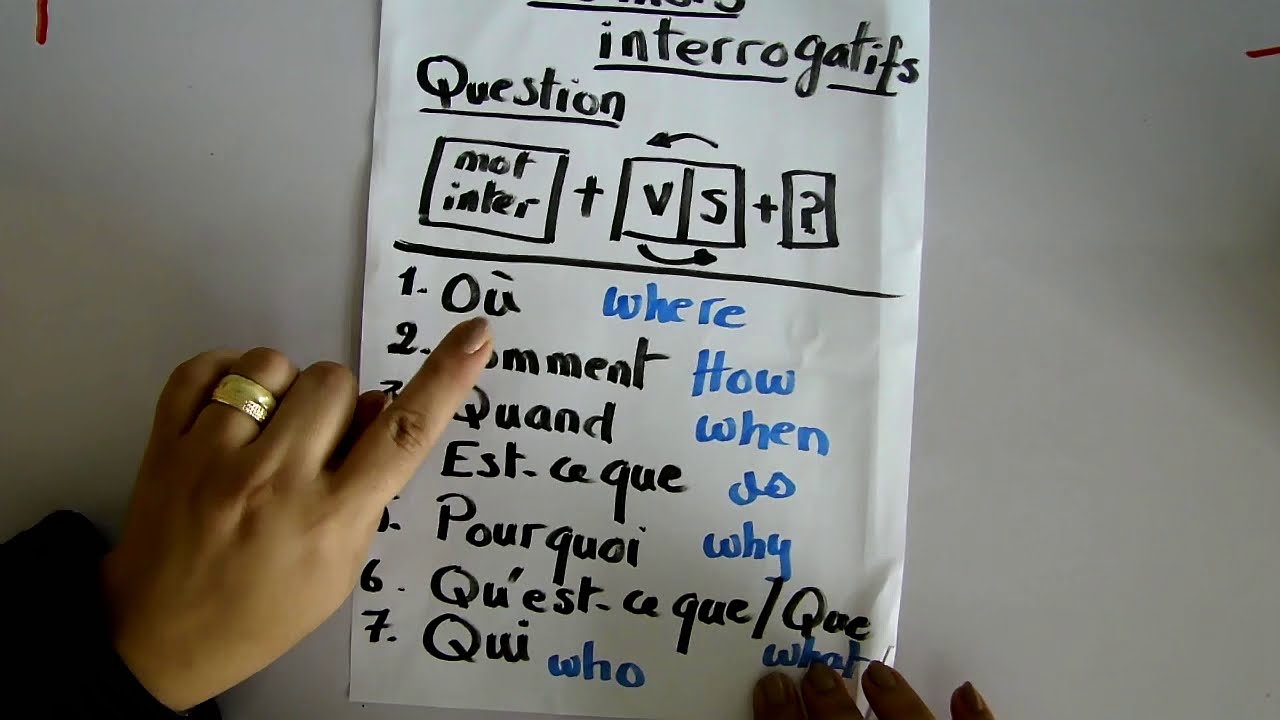 interrogatifs
Question
mot
inter + V S + ?
1. Où where
2. Comment How
Quand when
Est-ce que do
Pourquoi why
6. Qu'est-ce que/Que
what
7. Qui who